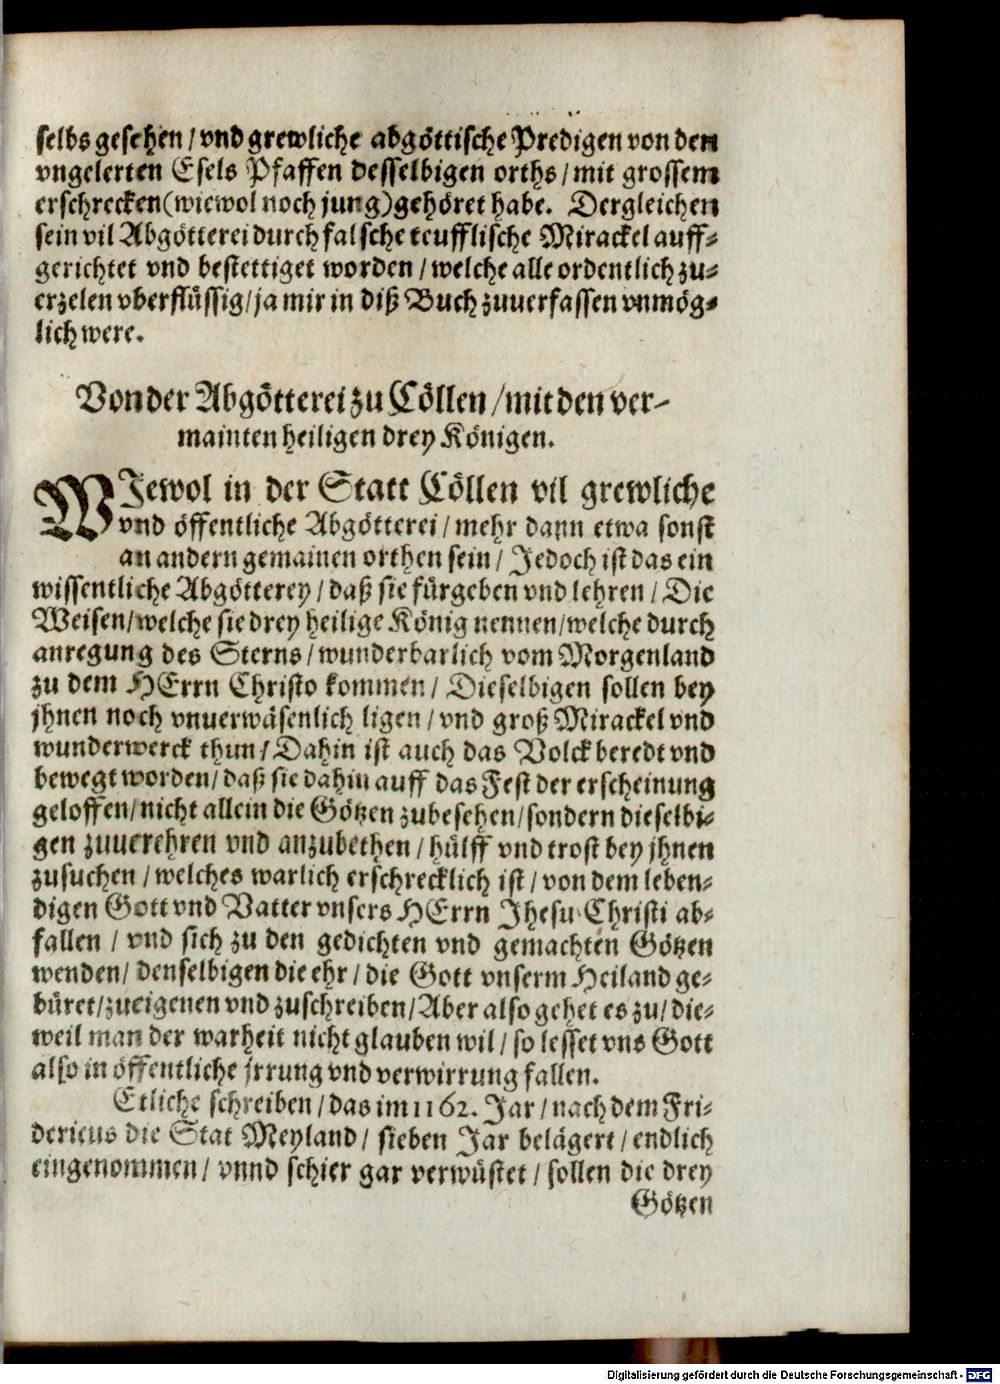 selbs gesehen / vnd grewliche abgöttische Predigen von den
vngelerten Esels Pfaffen desselbigen orths / mit grossem
erschrecken (wiewol noch jung) gehöret habe. Dergleichen
sein vil Abgötterei durch falsche teufflische Mirackel auff-
gerichtet vnd bestettiget worden / welche alle ordentlich zu-
erzelen vberflüssig / ja mir in diß Buch zuuerfassen vnmög-
lich were.
Von der Abgötterei zu Cöllen / mit den ver-
mainten heiligen drey Königen.
WJewol in der Statt Cöllen vil grewliche
vnd öffentliche Abgötterei / mehr dann etwa sonst
an andern gemainen orthen sein / Jedoch ist das ein
wissentliche Abgötterey / daß sie fürgeben vnd lehren / Die
Weisen / welche sie drey heilige König nennen / welche durch
anregung des Sterns / wunderbarlich vom Morgenland
zu dem HErrn Christo kommen / Dieselbigen sollen bey
jhnen noch vnuerwäsenlich ligen / vnd groß Mirackel vnd
wunderwerck thun / Dahin ist auch das Volck beredt vnd
bewegt worden / daß sie dahin auff das Fest der erscheinung
geloffen / nicht allein die Götzen zubesehen / sondern dieselbi-
gen zuuerehren vnd anzubethen / hülff vnd trost bey jhnen
zusuchen / welches warlich erschrecklich ist / von dem leben-
digen Gott vnd Vatter vnsers HErrn Jhesu Christi ab-
fallen / vnd sich zu den gedichten vnd gemachten Götzen
wenden / denselbigen die ehr / die Gott vnserm Heiland ge-
büret / zueigenen vnd zuschreiben / Aber also gehet es zu / die-
weil man der warheit nicht glauben wil / so lesset vns Gott
also in öffentliche jrrung vnd verwirrung fallen.
Etliche schreiben / das im 1162. Jar / nach dem Fri-
dericus die Stat Meyland / sieben Jar belägert / endlich
eingenommen / vnnd schier gar verwüstet / sollen die drey
Götzen
Digitalisierung gefördert durch die Deutsche Forschungsgemeinschaft - DFG